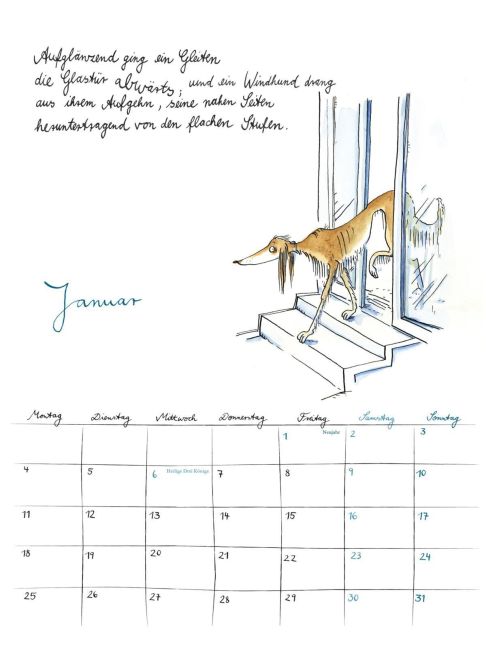 Aufglänzend ging ein Gleiten
die Glastür abwärts, und ein Windhund drang
aus ihrem Aufgehn, seine nahen Seiten
heruntertragend von den flachen Stufen.
Januar
Montag Dienstag Mittwoch Donnerstag Freitag Samstag Sonntag
1 Neujahr 2 3
4 5 6 Heilige Drei Könige 7 8 9 10
11 12 13 14 15 16 17
18 19 20 21 22 23 24
25 26 27 28 29 30 31